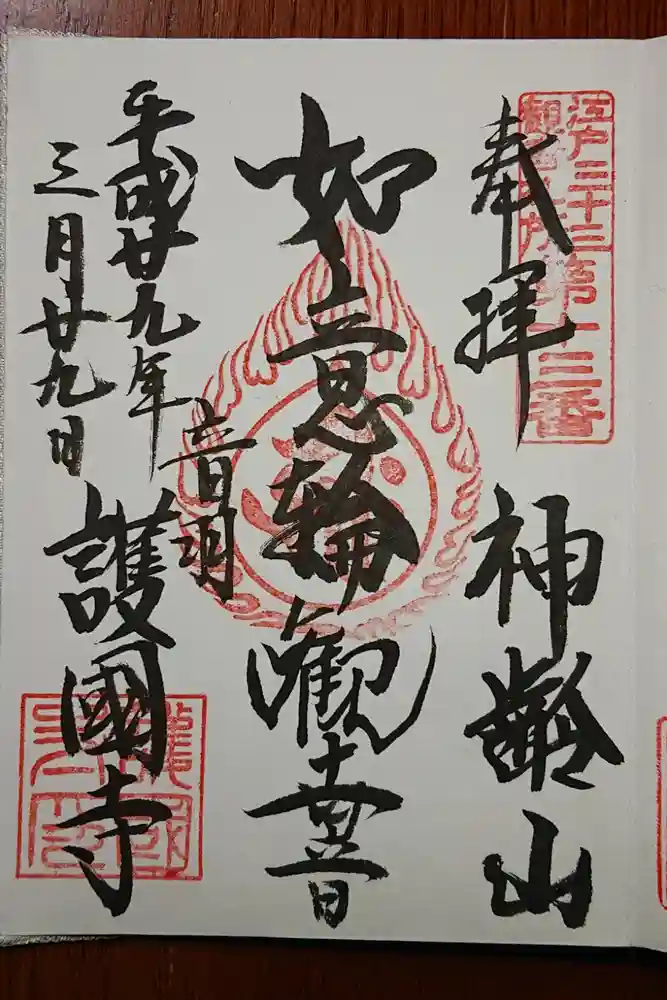 江戸三十三
観音札所第十三番
奉拝
神齢山
如意輪観世音
音羽
護國寺
平成廿九年
三月廿九日